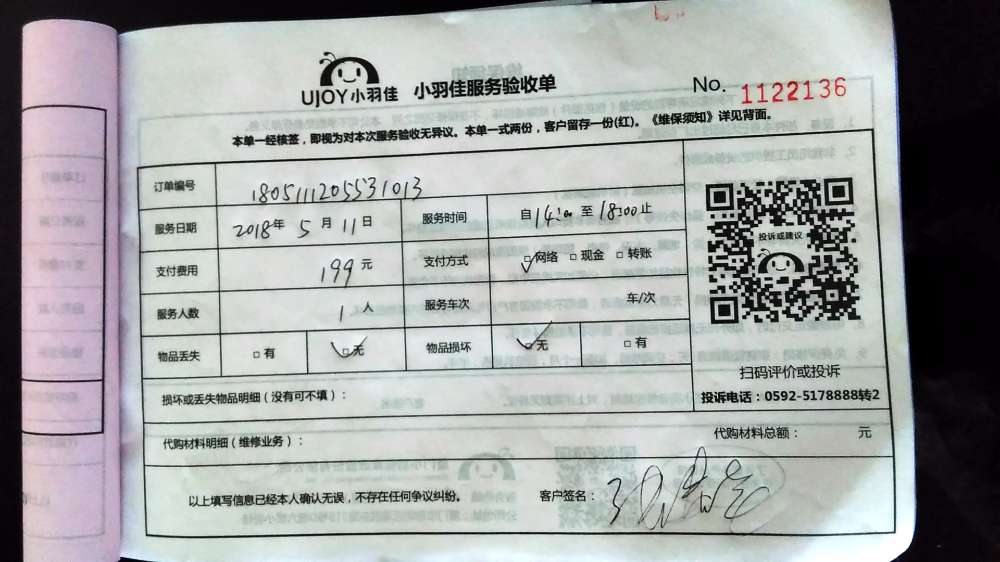 UJOY小羽佳 小羽佳服务验收单 No. 1122136
本单一经核签，即视为对本次服务验收无异议。本单一式两份，客户留存一份(红)。《维保须知》详见背面。
订单编号 180511120553​1013
服务日期 2018年 5 月 11 日 服务时间 自 14:00 至 18:00 止
投诉或建议
支付费用 199 元 支付方式 □网络 □现金 □转账
服务人数 1 人 服务车次 车/次
物品丢失 □有 □无 物品损坏 □无 □有
扫码评价或投诉
损坏或丢失物品明细（没有可不填）：
投诉电话：0592-5178888转2
代购材料明细（维修业务）： 代购材料总额： 元
以上填写信息已经本人确认无误，不存在任何争议纠纷。 客户签名：